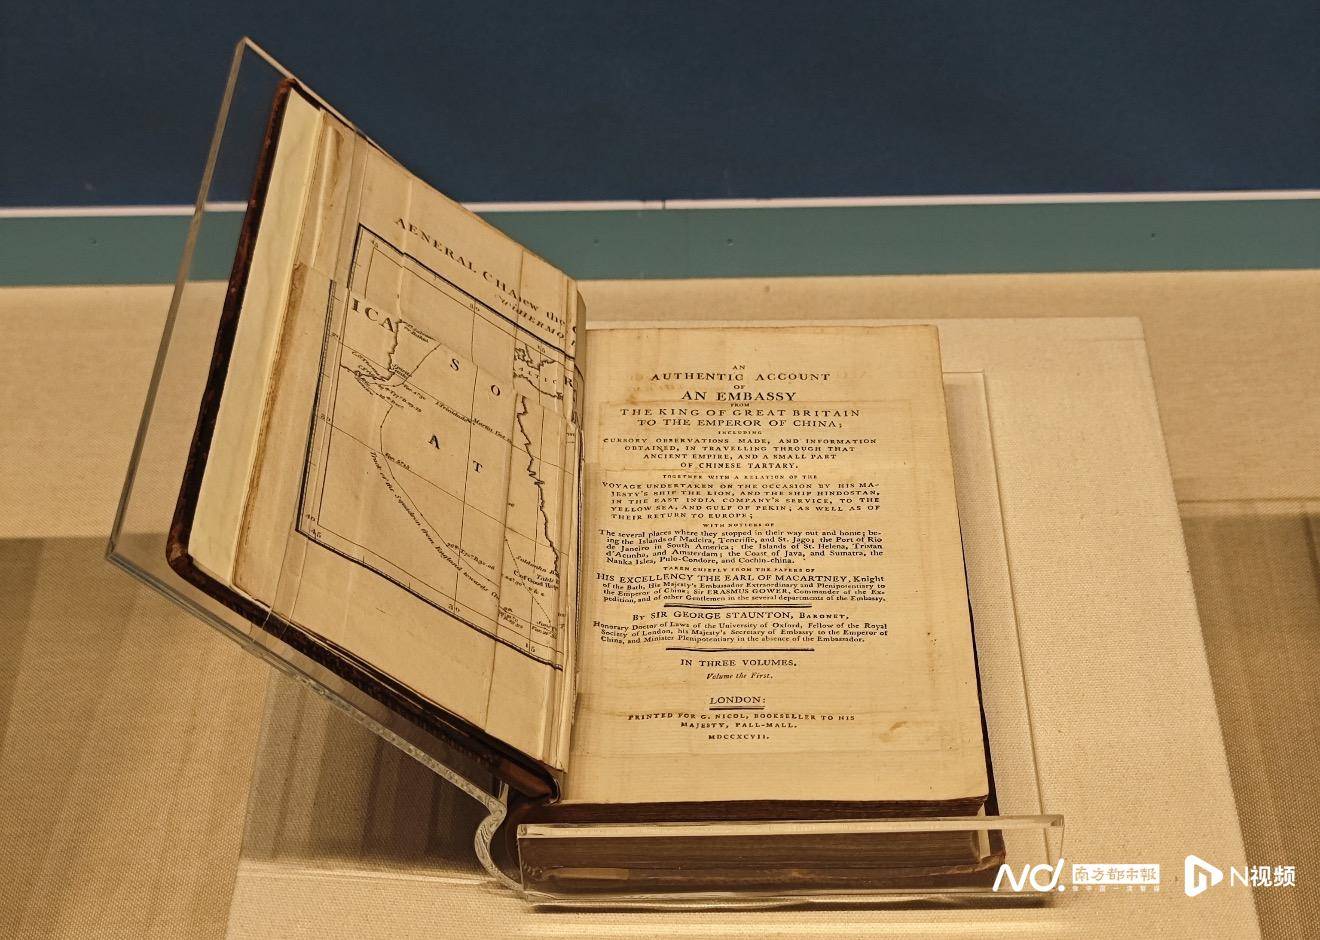 AENERAL CHA
ew the
ICA
S O
A T
AN
AUTHENTIC ACCOUNT
OF
AN EMBASSY
FROM
THE KING OF GREAT BRITAIN
TO THE EMPEROR OF CHINA;
INCLUDING
CURSORY OBSERVATIONS MADE, AND INFORMATION
OBTAINED, IN TRAVELLING THROUGH THAT
ANCIENT EMPIRE, AND A SMALL PART
OF CHINESE TARTARY.
TOGETHER WITH A RELATION OF THE
VOYAGE UNDERTAKEN ON THE OCCASION BY HIS MA-
JESTY'S SHIP THE LION, AND THE SHIP HINDOSTAN,
IN THE EAST INDIA COMPANY'S SERVICE, TO THE
YELLOW SEA, AND GULF OF PEKIN; AS WELL AS OF
THEIR RETURN TO EUROPE;
WITH NOTICES OF
The several places where they stopped in their way out and home; be-
ing the Islands of Madeira, Teneriffe, and St. Jago; the Port of Rio
de Janeiro in South America; the Islands of St. Helena, Tristan
d'Acunha, and Amsterdam; the Coast of Java, and Sumatra, the
Nanka Isles, Pulo-Condore, and Cochin-china.
TAKEN CHIEFLY FROM THE PAPERS OF
HIS EXCELLENCY THE EARL OF MACARTNEY, Knight
of the Bath, His Majesty's Embassador Extraordinary and Plenipotentiary to
the Emperor of China; Sir ERASMUS GOWER, Commander of the Ex-
pedition, and of other Gentlemen in the several departments of the Embassy.
By SIR GEORGE STAUNTON, BARONET,
Honorary Doctor of Laws of the University of Oxford, Fellow of the Royal
Society of London, his Majesty's Secretary of Embassy to the Emperor of
China, and Minister Plenipotentiary in the absence of the Embassador.
IN THREE VOLUMES.
Volume the First.
LONDON:
PRINTED FOR G. NICOL, BOOKSELLER TO HIS
MAJESTY, PALL-MALL.
MDCCXCVII.
南方都市報
N视频